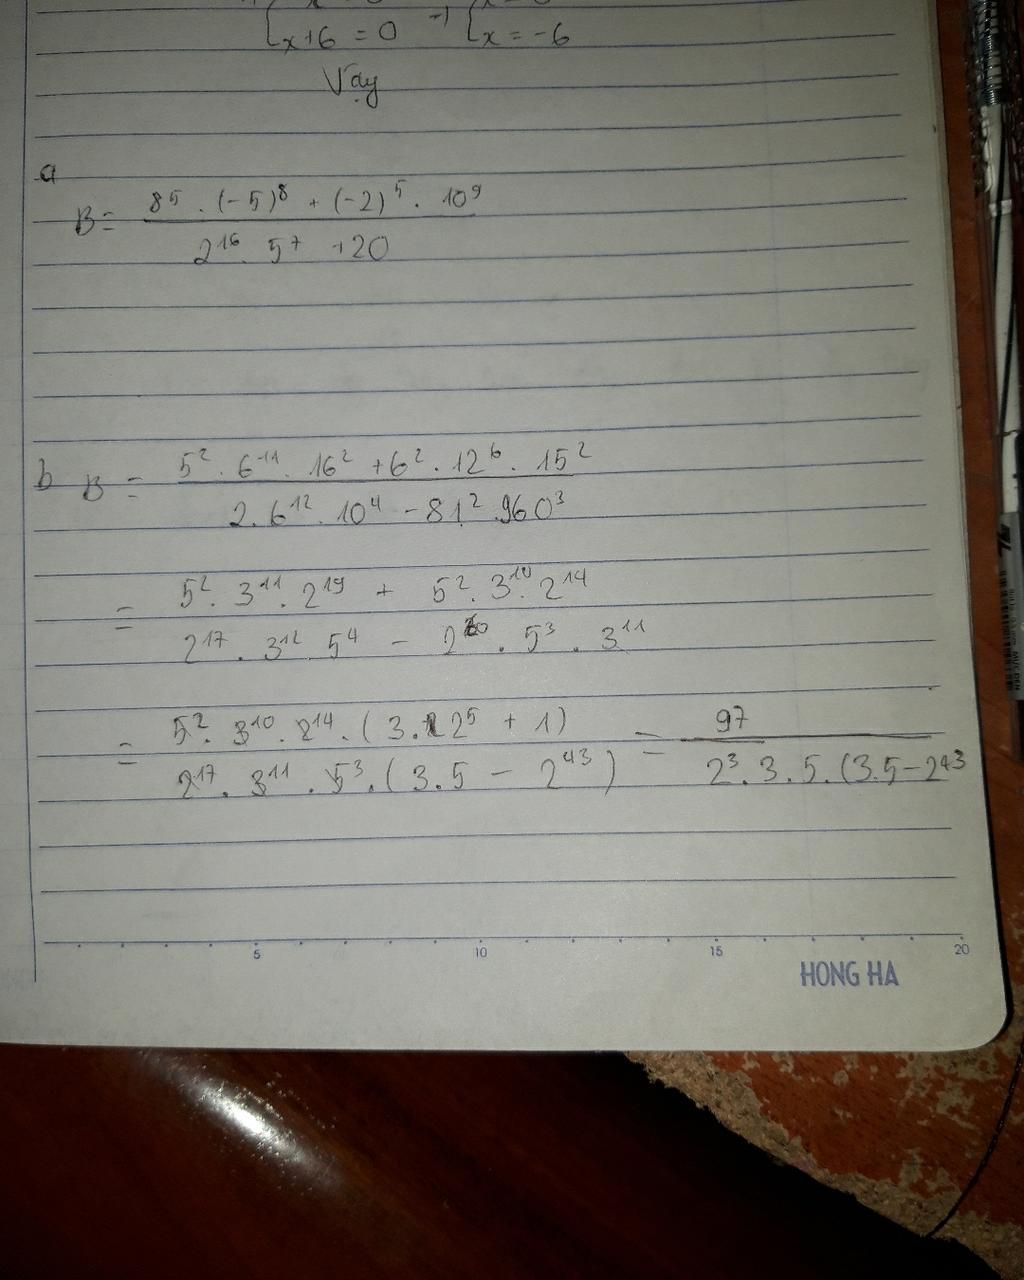 x+6 = 0 → x = -6
Vạy
a
B = 8⁵ . (-5)⁸ + (-2)⁵ . 10⁹
2¹⁶ . 5⁷ + 20
b B = 5² . 6¹¹ . 16² + 6² . 12⁶ . 15²
2 . 6¹² . 10⁴ - 81² . 960³
= 5² . 3¹¹ . 2¹⁹ + 5² . 3¹⁰ . 2¹⁴
2¹⁷ . 3¹² . 5⁴ - 2 . 5³ . 3¹¹
= 5² . 3¹⁰ . 2¹⁴ . (3 . 2⁵ + 1) = 97
2¹⁷ . 3¹¹ . 5³ . (3.5 - 2⁴³) 2³ . 3 . 5 . (3.5 - 2⁴³
5 10 15 20
HONG HA